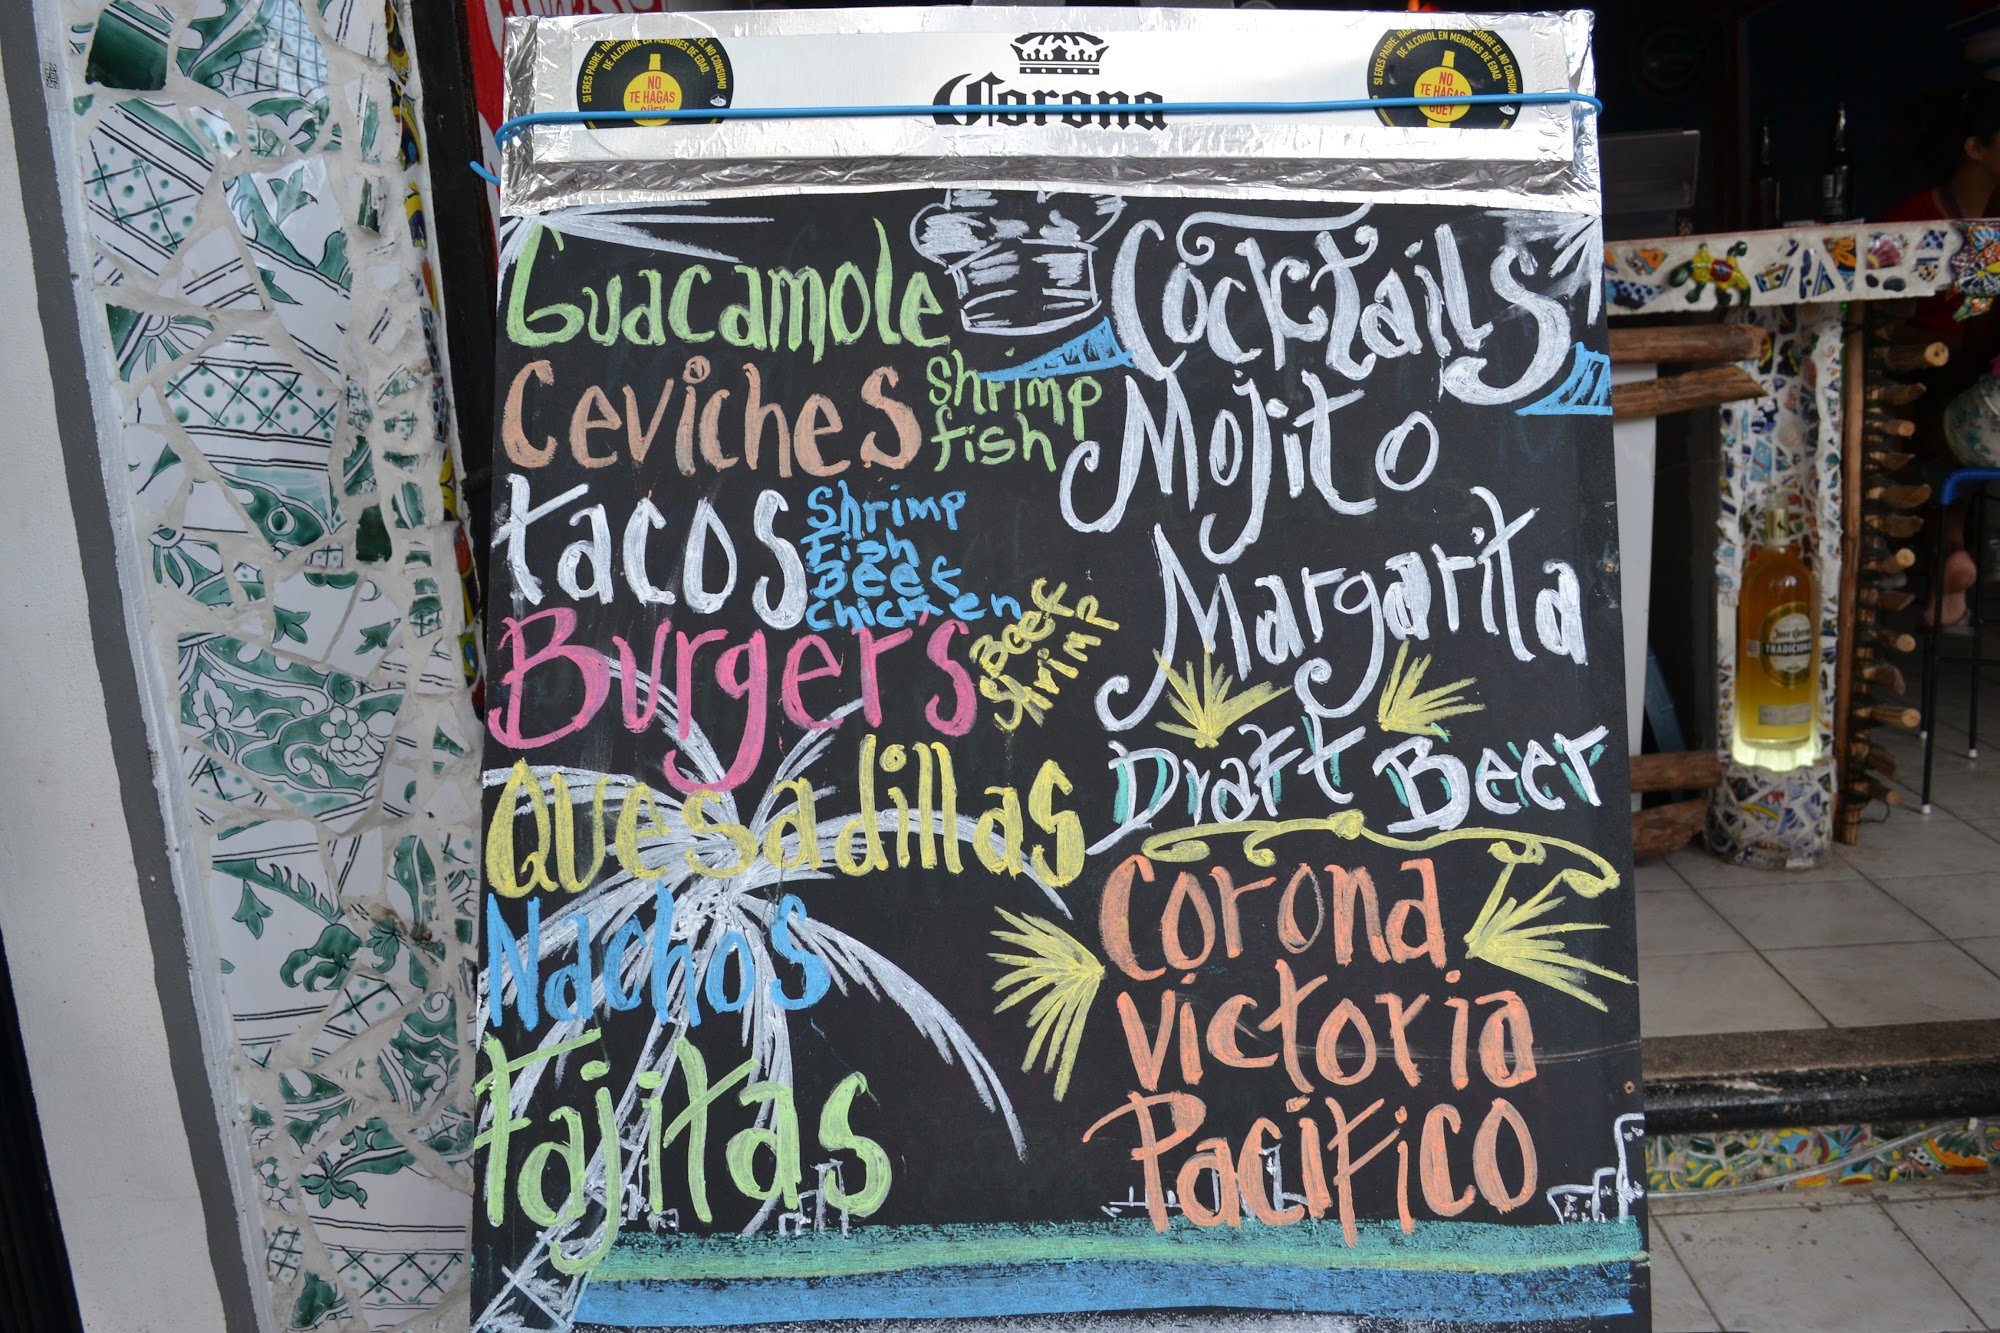 SI ERES PADRE, HABLA
EL NO CONSUMO
DE ALCOHOL EN MENORES DE EDAD.
NO
TE HAGAS
GÜEY
Corona
SOBRE EL NO CONSUMO
DE ALCOHOL EN MENORES DE EDAD.
SI ERES PADRE, HAB
NO
TE HAGAS
GÜEY
Guacamole
Ceviches
Shrimp
fish
tacos
Shrimp
Fish
Beef
chicken
Burger's
Beef
Shrimp
Quesadillas
Nachos
Fajitas
Cocktails
Mojito
Margarita
Draft Beer
Corona
victoria
Pacifico
Jose Cuervo
TRADICIONAL